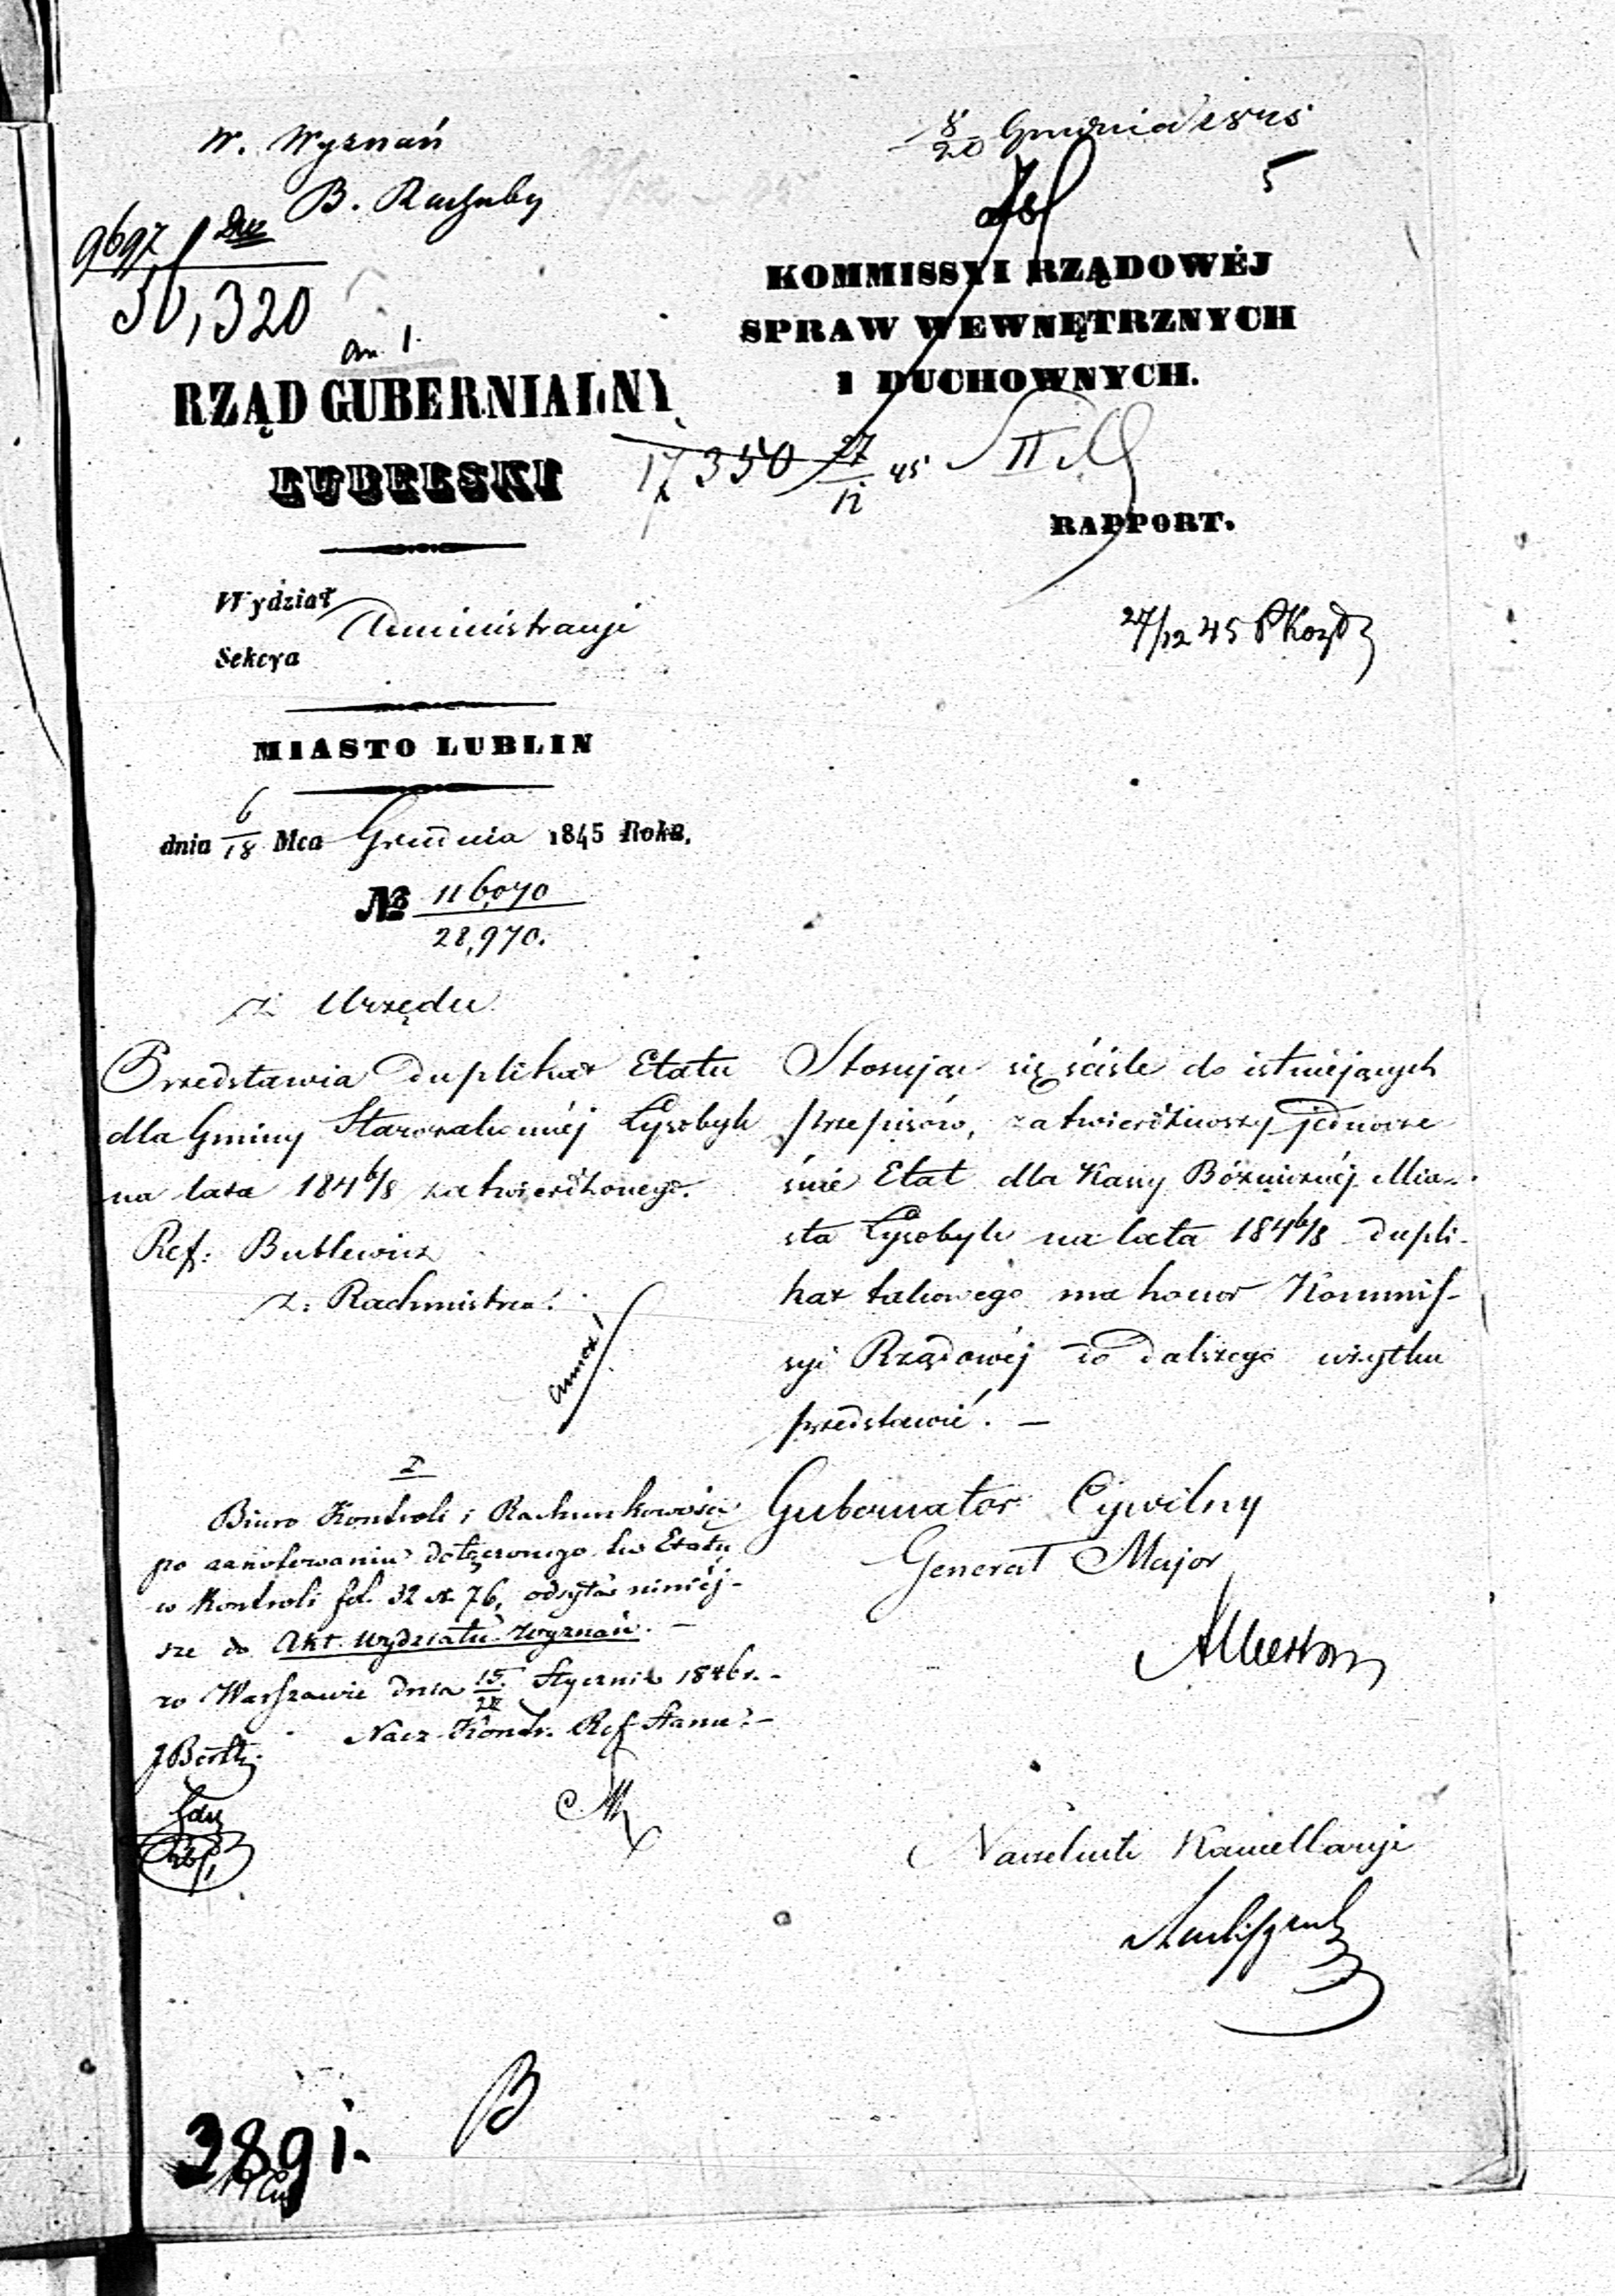 W. Wyznań
B. Rachuby
9697
50,320
an. 1.
RZĄD GUBERNIALNY
LUBELSKI
Wydział Administracyi
Sekcya
MIASTO LUBLIN
dnia 6/18 Mca Grudnia 1845 Roku.
№ 116,070
28,970.
z Urzędu
Przedstawia duplikat Etatu
dla Gminy Starozakonnéj Łysobyk
na lata 1846/8 zatwierdzonego.
Ref: Butlewicz
z: Rachmistrza
annex 1
8/20 Grudnia 1845
5
KOMMISSYI RZĄDOWÉJ
SPRAW WEWNĘTRZNYCH
I DUCHOWNYCH.
17350 27/12 45
II
RAPPORT.
27/12 45
Stosując się ściśle do istniejących
przepisów, zatwierdziwszy jednocze
śnie Etat dla Kassy Bóżniczéj Mia-
sta Łysobyk na lata 1846/8 dupli-
kat takowego ma honor Kommis-
syi Rządowéj do dalszego użytku
przedstawić. —
Gubernator Cywilny
Generał Major
Albertow
Naczelnik Kancellaryi
I
Biuro Kontroli i Rachunkowości
po zanotowaniu dołączonego tu Etatu
w Kontroli fol. 32 st. 76, odsyła niniéj-
sze do Akt Wydziału Wyznań. —
w Warszawie dnia 15 Stycznia 1846 r. -
Nacz. Kontr. Ref Stanu -
B
3891.